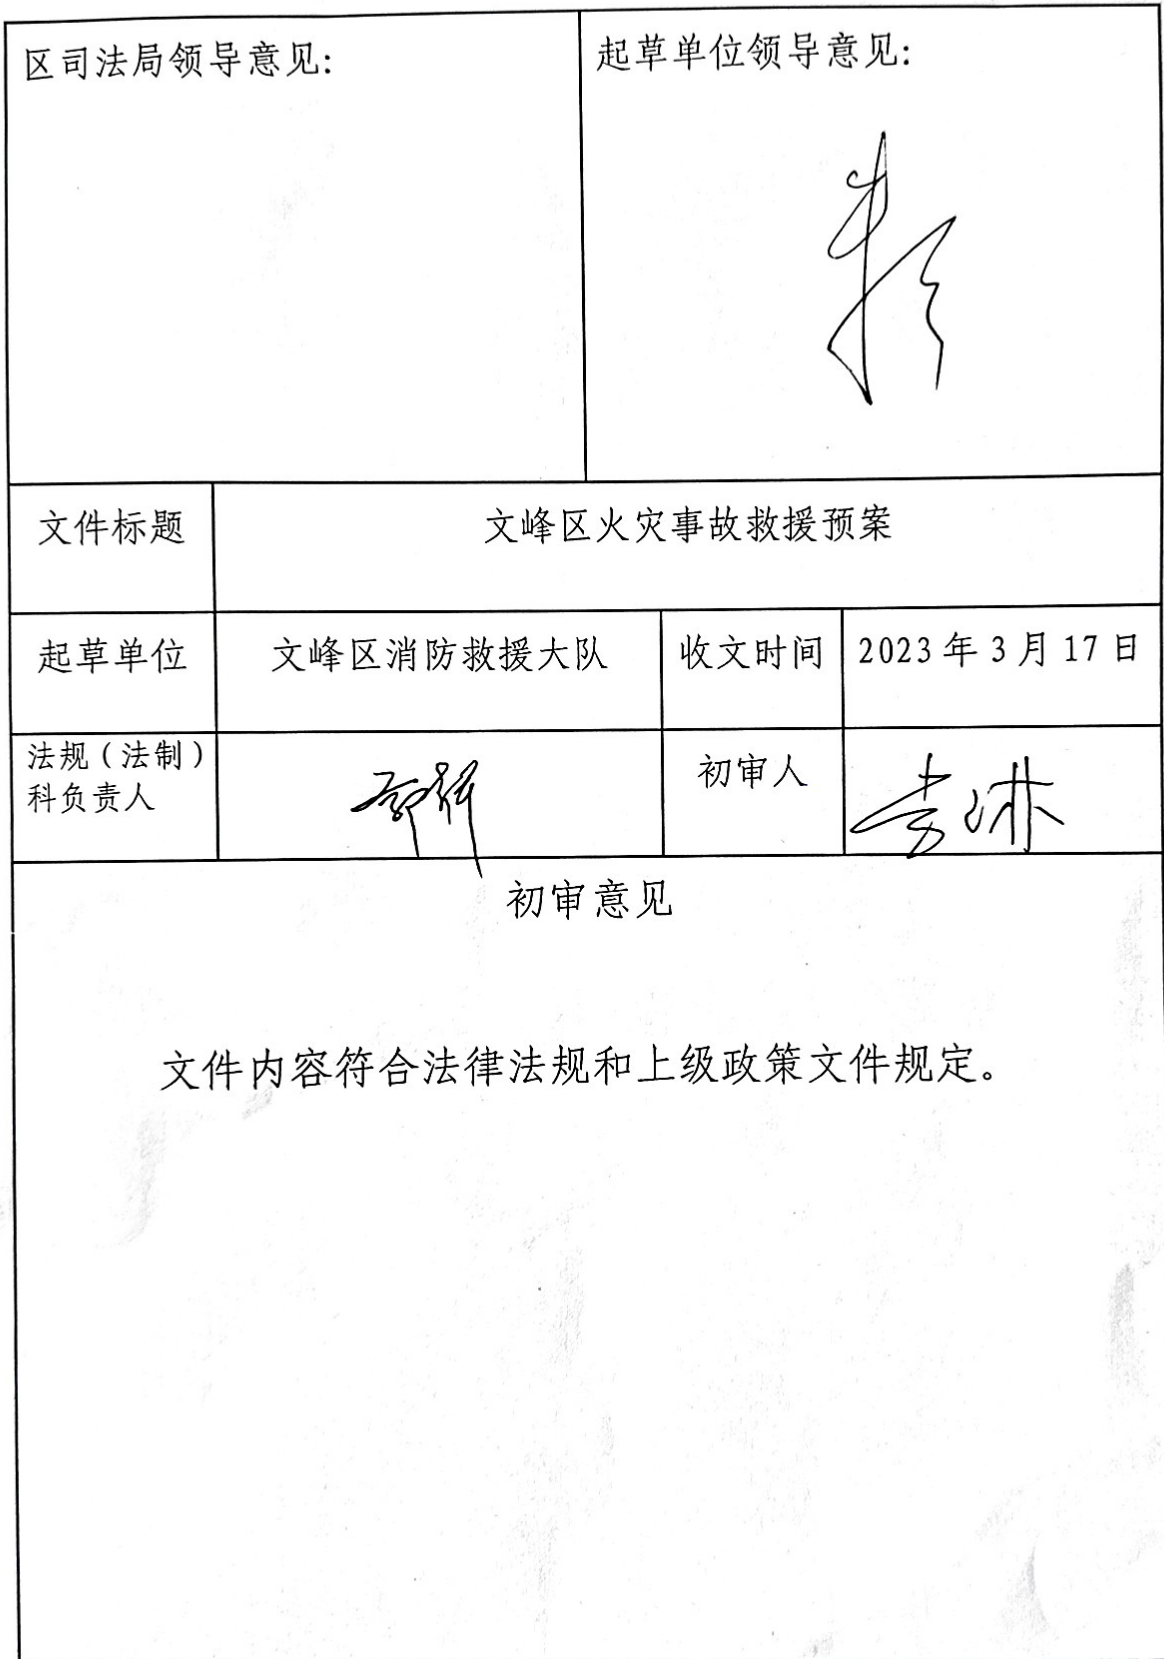 区司法局领导意见:
起草单位领导意见:
文件标题
文峰区火灾事故救援预案
起草单位
文峰区消防救援大队
收文时间
2023年3月17日
法规（法制）
科负责人
初审人
初审意见
文件内容符合法律法规和上级政策文件规定。